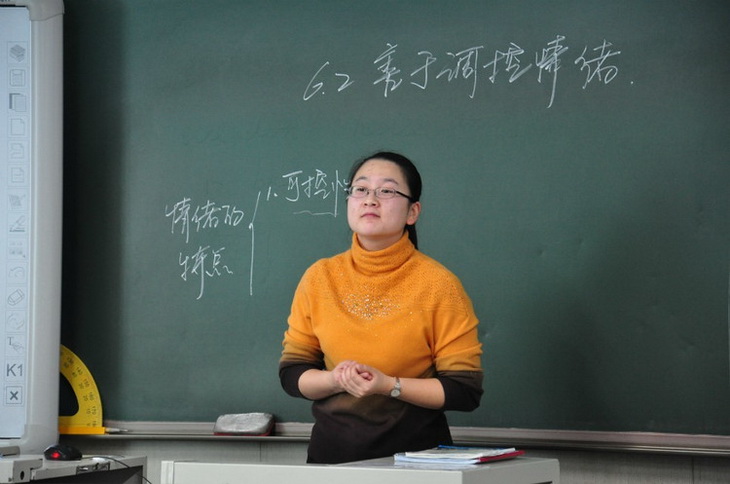 6.2 善于调控情绪.
情绪的
特点
1. 可控性
K1